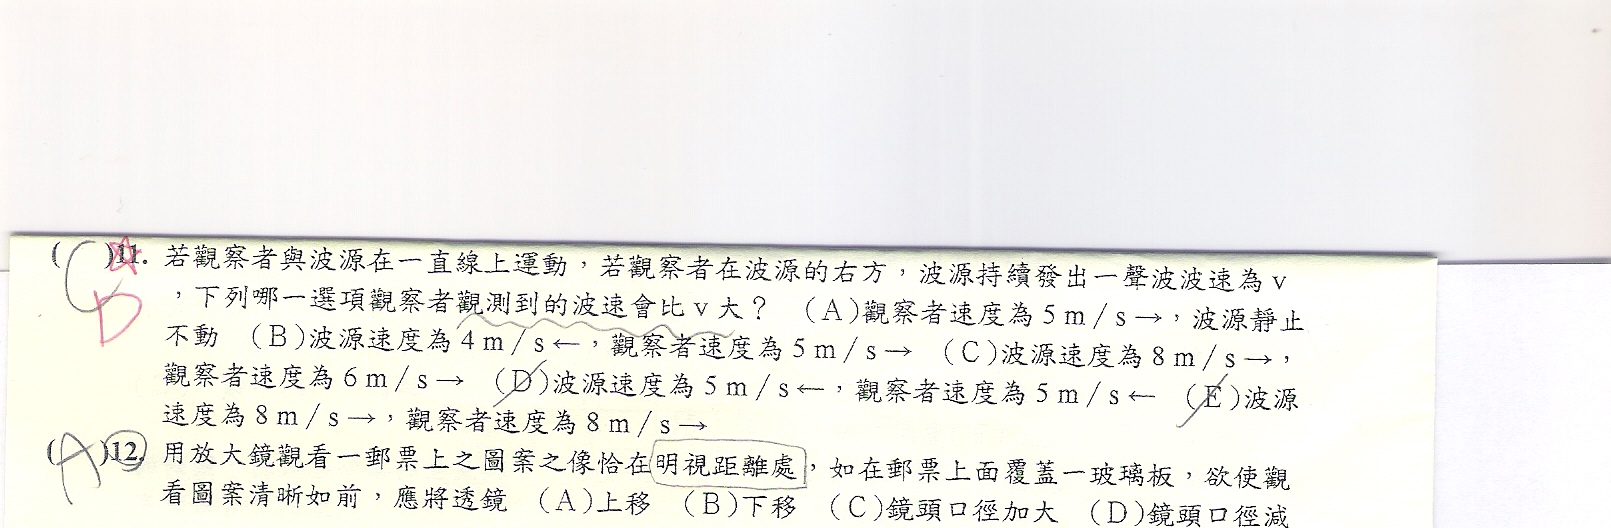 ( C )11. 若觀察者與波源在一直線上運動，若觀察者在波源的右方，波源持續發出一聲波波速為v
D ，下列哪一選項觀察者觀測到的波速會比v大？ (A)觀察者速度為5m/s→，波源靜止
不動 (B)波源速度為4m/s←，觀察者速度為5m/s→ (C)波源速度為8m/s→，
觀察者速度為6m/s→ (D)波源速度為5m/s←，觀察者速度為5m/s← (E)波源
速度為8m/s→，觀察者速度為8m/s→
( A )12. 用放大鏡觀看一郵票上之圖案之像恰在明視距離處，如在郵票上面覆蓋一玻璃板，欲使觀
看圖案清晰如前，應將透鏡 (A)上移 (B)下移 (C)鏡頭口徑加大 (D)鏡頭口徑減